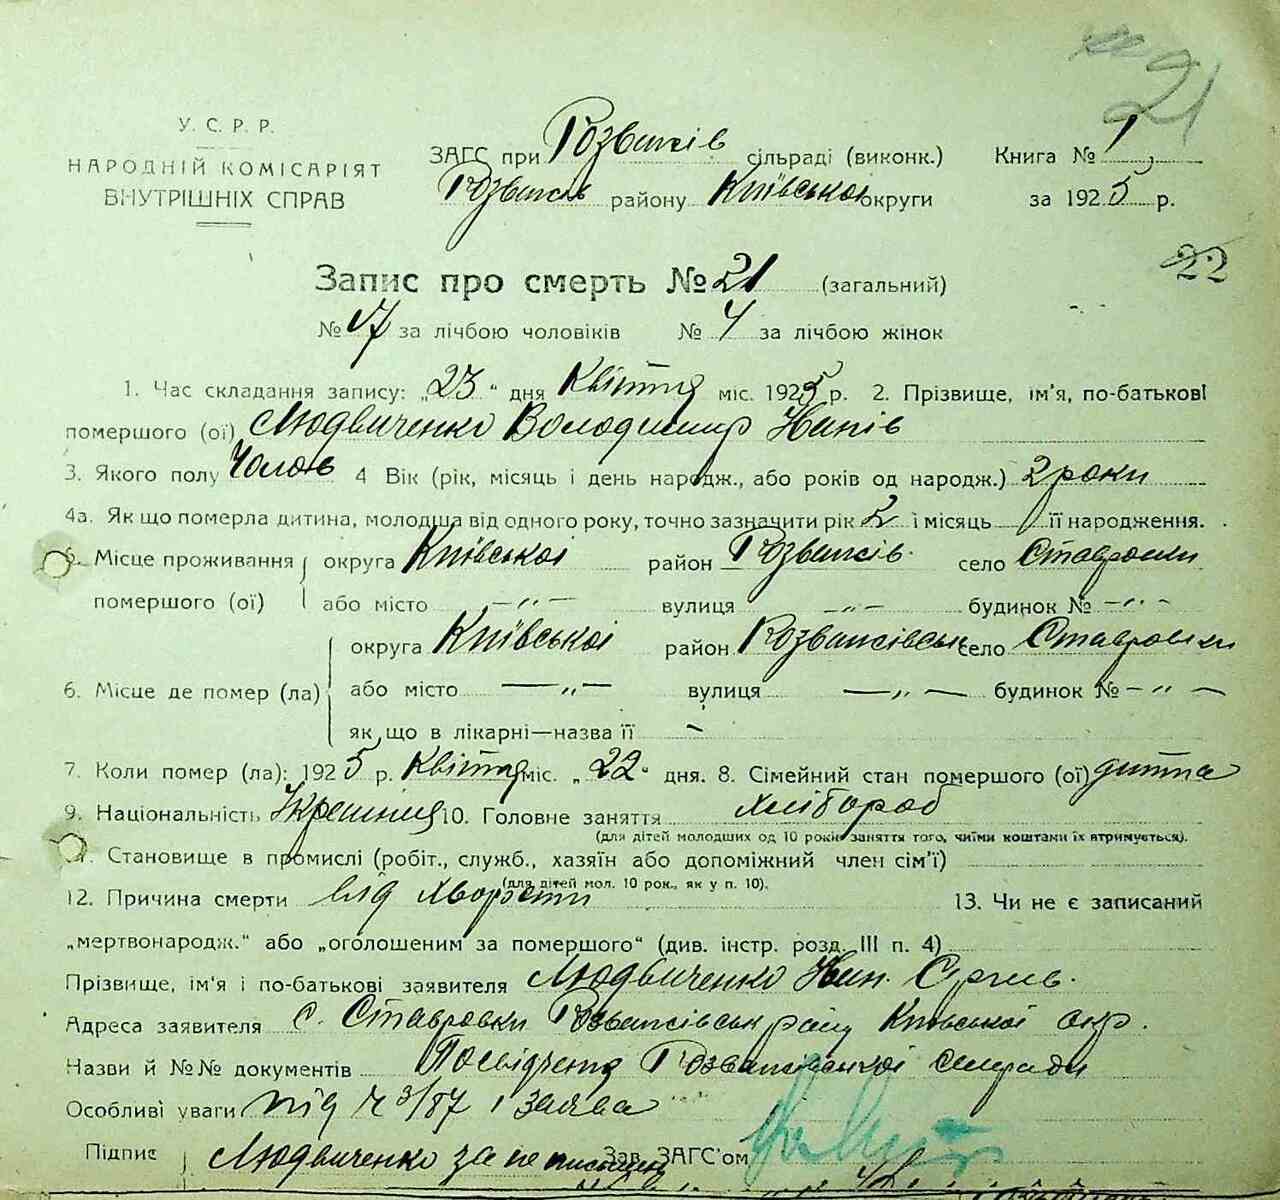 21
У. С. Р. Р.
НАРОДНІЙ КОМІСАРІЯТ
ВНУТРІШНІХ СПРАВ
ЗАГС при Розважів сільраді (виконк.) Книга № 1
Розважів району Київської округи за 1925 р.
22
Запис про смерть № 21 (загальний)
№ 17 за лічбою чоловіків № 4 за лічбою жінок
1. Час складання запису: „23“ дня Квітня міс. 1925 р. 2. Прізвище, ім'я, по-батькові
помершого (ої) Людвиченко Володимир
3. Якого полу Чолов 4 Вік (рік, місяць і день народж., або років од народж.) 2 роки
4а. Як що померла дитина, молодша від одного року, точно зазначити рік і місяць її народження.
5. Місце проживання округа Київської район Розважів село Ставровки
помершого (ої) або місто —„— вулиця —„— будинок № —„—
округа Київської район Розважівськ село Ставровки
6. Місце де помер (ла) або місто —„— вулиця —„— будинок № —„—
як що в лікарні—назва її -
7. Коли помер (ла): 1925 р. Квітня міс. „22“ дня. 8. Сімейний стан помершого (ої) дитта
9. Національність 10. Головне заняття хлібороб
(для дітей молодших од 10 років заняття того, чиїми коштами їх втримується).
11. Становище в промислі (робіт., служб., хазяїн або допоміжний член сім'ї)
(для дітей мол. 10 рок., як у п. 10).
12. Причина смерти від хворости 13. Чи не є записаний
„мертвонародж.“ або „оголошеним за помершого“ (див. інстр. розд. III п. 4)
Прізвище, ім'я і по-батькові заявителя Людвиченко
Адреса заявителя с. Ставровки Розважівськ райу Київської окр.
Назви й №№ документів Посвідченя Розважівської сільради
Особливі уваги під ч 3/87 і заява
Підпис Людвиченко за не письмен Зав. ЗАГС'ом